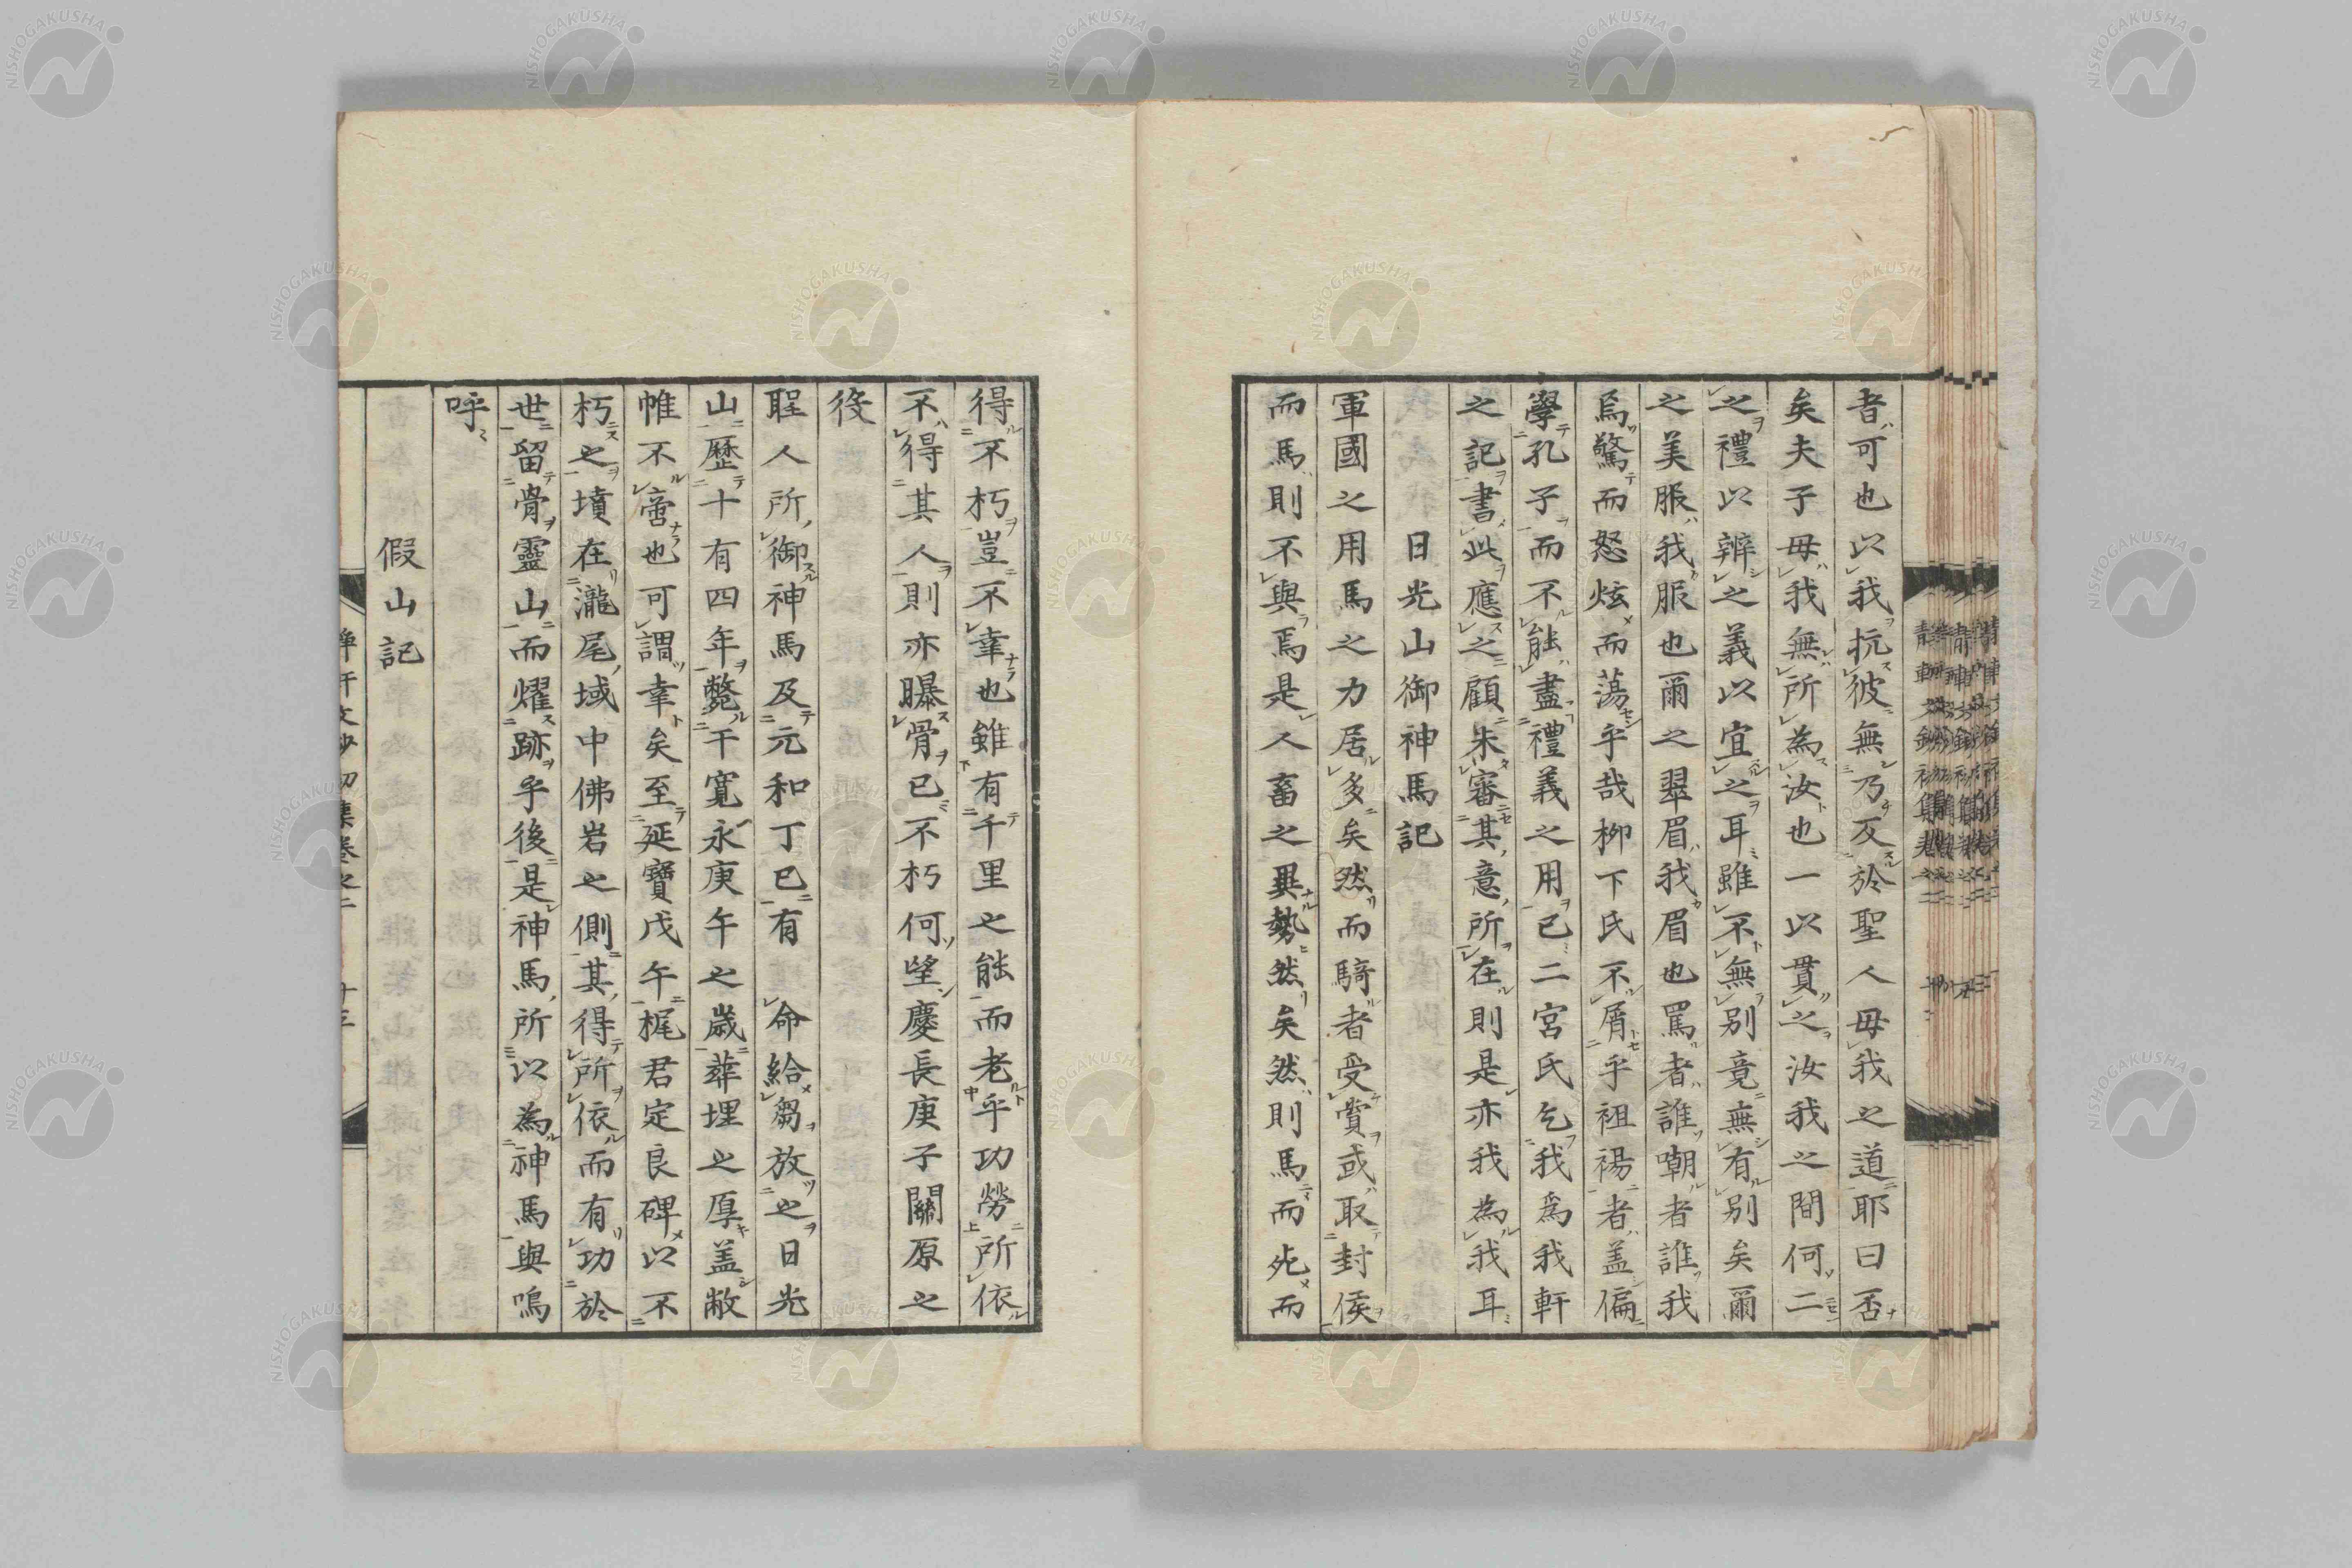 者可也以我抗彼無乃反於聖人毋我之道耶曰否
矣夫子毋我無所為汝也一以貫之汝我之間何二
之禮以辨之義以宜之耳雖不無別竟無有別矣爾
之美服我服也爾之翠眉我眉也罵者誰嘲者誰我
焉驚而怒炫而蕩乎哉柳下氏不屑乎袒裼者盖偏
學孔子而不能盡禮義之用已二宮氏乞我為我軒
之記書此應之顧朱審其意所在則是亦我為我耳
日光山御神馬記
軍國之用馬之力居多矣然而騎者受賞或取封侯
而馬則不與焉是人畜之異勢然矣然則馬而死而
得不朽豈不幸也雖有千里之能而老乎功勞所依
不得其人則亦曝骨已不朽何望慶長庚子關原之
役
聖人所御神馬及元和丁巳有 命給芻放之日光
山歷十有四年斃于寬永庚午之歲葬埋之厚盖敝
帷不啻也可謂幸矣至延寶戊午梶君定良碑以不
朽之墳在瀧尾域中佛岩之側其得所依而有功於
世留骨靈山而燿跡乎後是神馬所以為神馬與嗚
呼
假山記
NISHOGAKUSHA